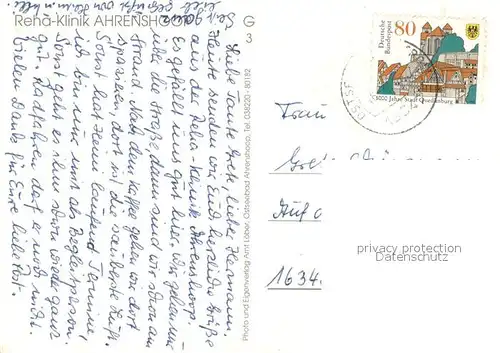 Reha-Klinik AHRENSHOOP
G
3
Liebe Tante Grete, liebe Hermann,
Heute senden wir Euch herzliche Grüße
aus der Reha-Klinik Ahrenshoop.
Es gefällt uns gut hier. Wir gehen nur
über die Straße, dann sind wir schon am
Strand. Nach dem Kaffee gehen wir dort
spazieren, dort ist die sauberste Luft.
Sonst hat Heini laufend Termine
Ich bin nur mit als Begleitperson.
Sonst geht es ihm schon wieder ganz
gut. Radfahren darf er noch nicht.
Vielen Dank für Eure liebe Post.
Photo und Eigenverlag Arnt Löber, Ostseebad Ahrenshoop, Tel. 038220-80182
Deutsche
Bundespost
80
1000 Jahre Stadt Quedlinburg
Frau
Auf
1634
privacy protection
Datenschutz